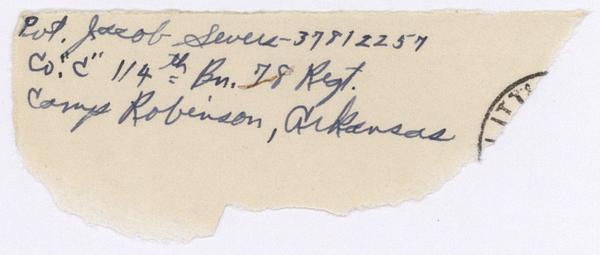 Pvt. Jacob Severs-37812257
Co. "C" 114th Bn. 78 Regt.
Camp Robinson, Arkansas